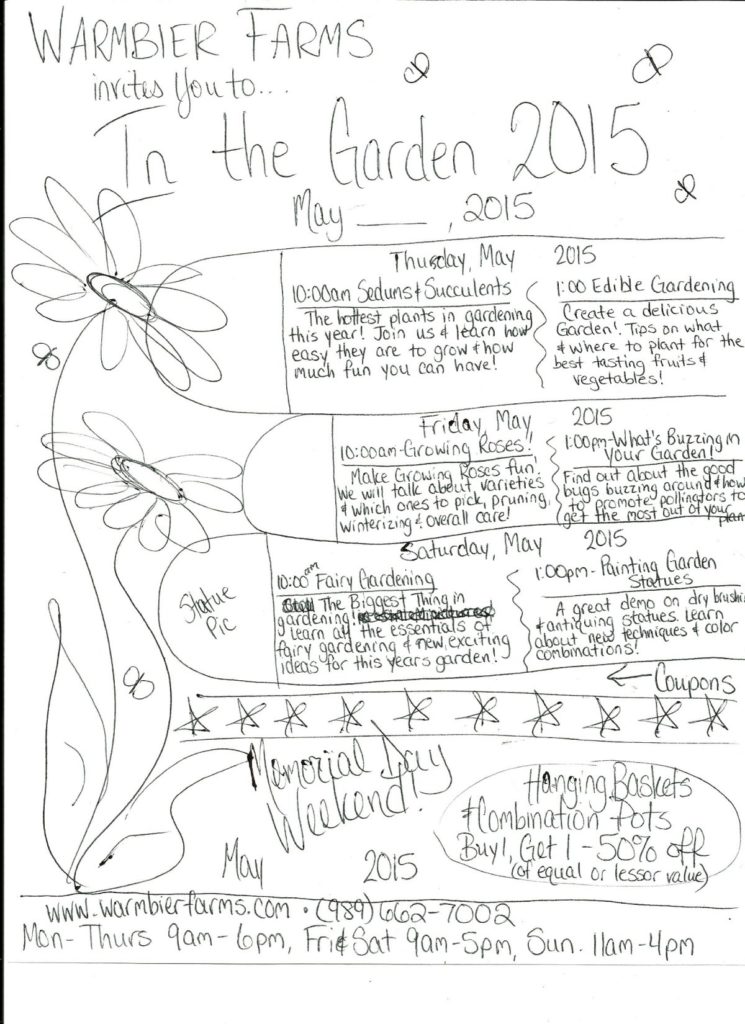 WARMBIER FARMS
invites You to...
In the Garden 2015
May ____, 2015
Thursday, May 2015
10:00am Sedums & Succulents
The hottest plants in gardening
this year! Join us & learn how
easy they are to grow & how
much fun you can have!
1:00 Edible Gardening
Create a delicious
Garden! Tips on what
& where to plant for the
best tasting fruits &
vegetables!
Friday, May 2015
10:00am-Growing Roses!
Make Growing Roses fun!
We will talk about varieties
& which ones to pick, pruning,
winterizing & overall care!
1:00pm-What's Buzzing in
your Garden!
Find out about the good
bugs buzzing around & how
to promote pollinators to
get the most out of your
plant
Saturday, May 2015
Statue
Pic
10:00am Fairy Gardening
The Biggest Thing in
gardening!
Learn all the essentials of
fairy gardening & new, exciting
ideas for this years garden!
1:00pm- Painting Garden
Statues
A great demo on dry brushi
& antiquing statues. Learn
about new techniques & color
combinations!
← Coupons
Memorial Day
Weekend!
May 2015
Hanging Baskets
& Combination Pots
Buy 1, Get 1 - 50% off
(of equal or lessor value)
www.warmbierfarms.com • (989) 662-7002
Mon- Thurs 9am- 6pm, Fri & Sat 9am-5pm, Sun. 11am-4pm